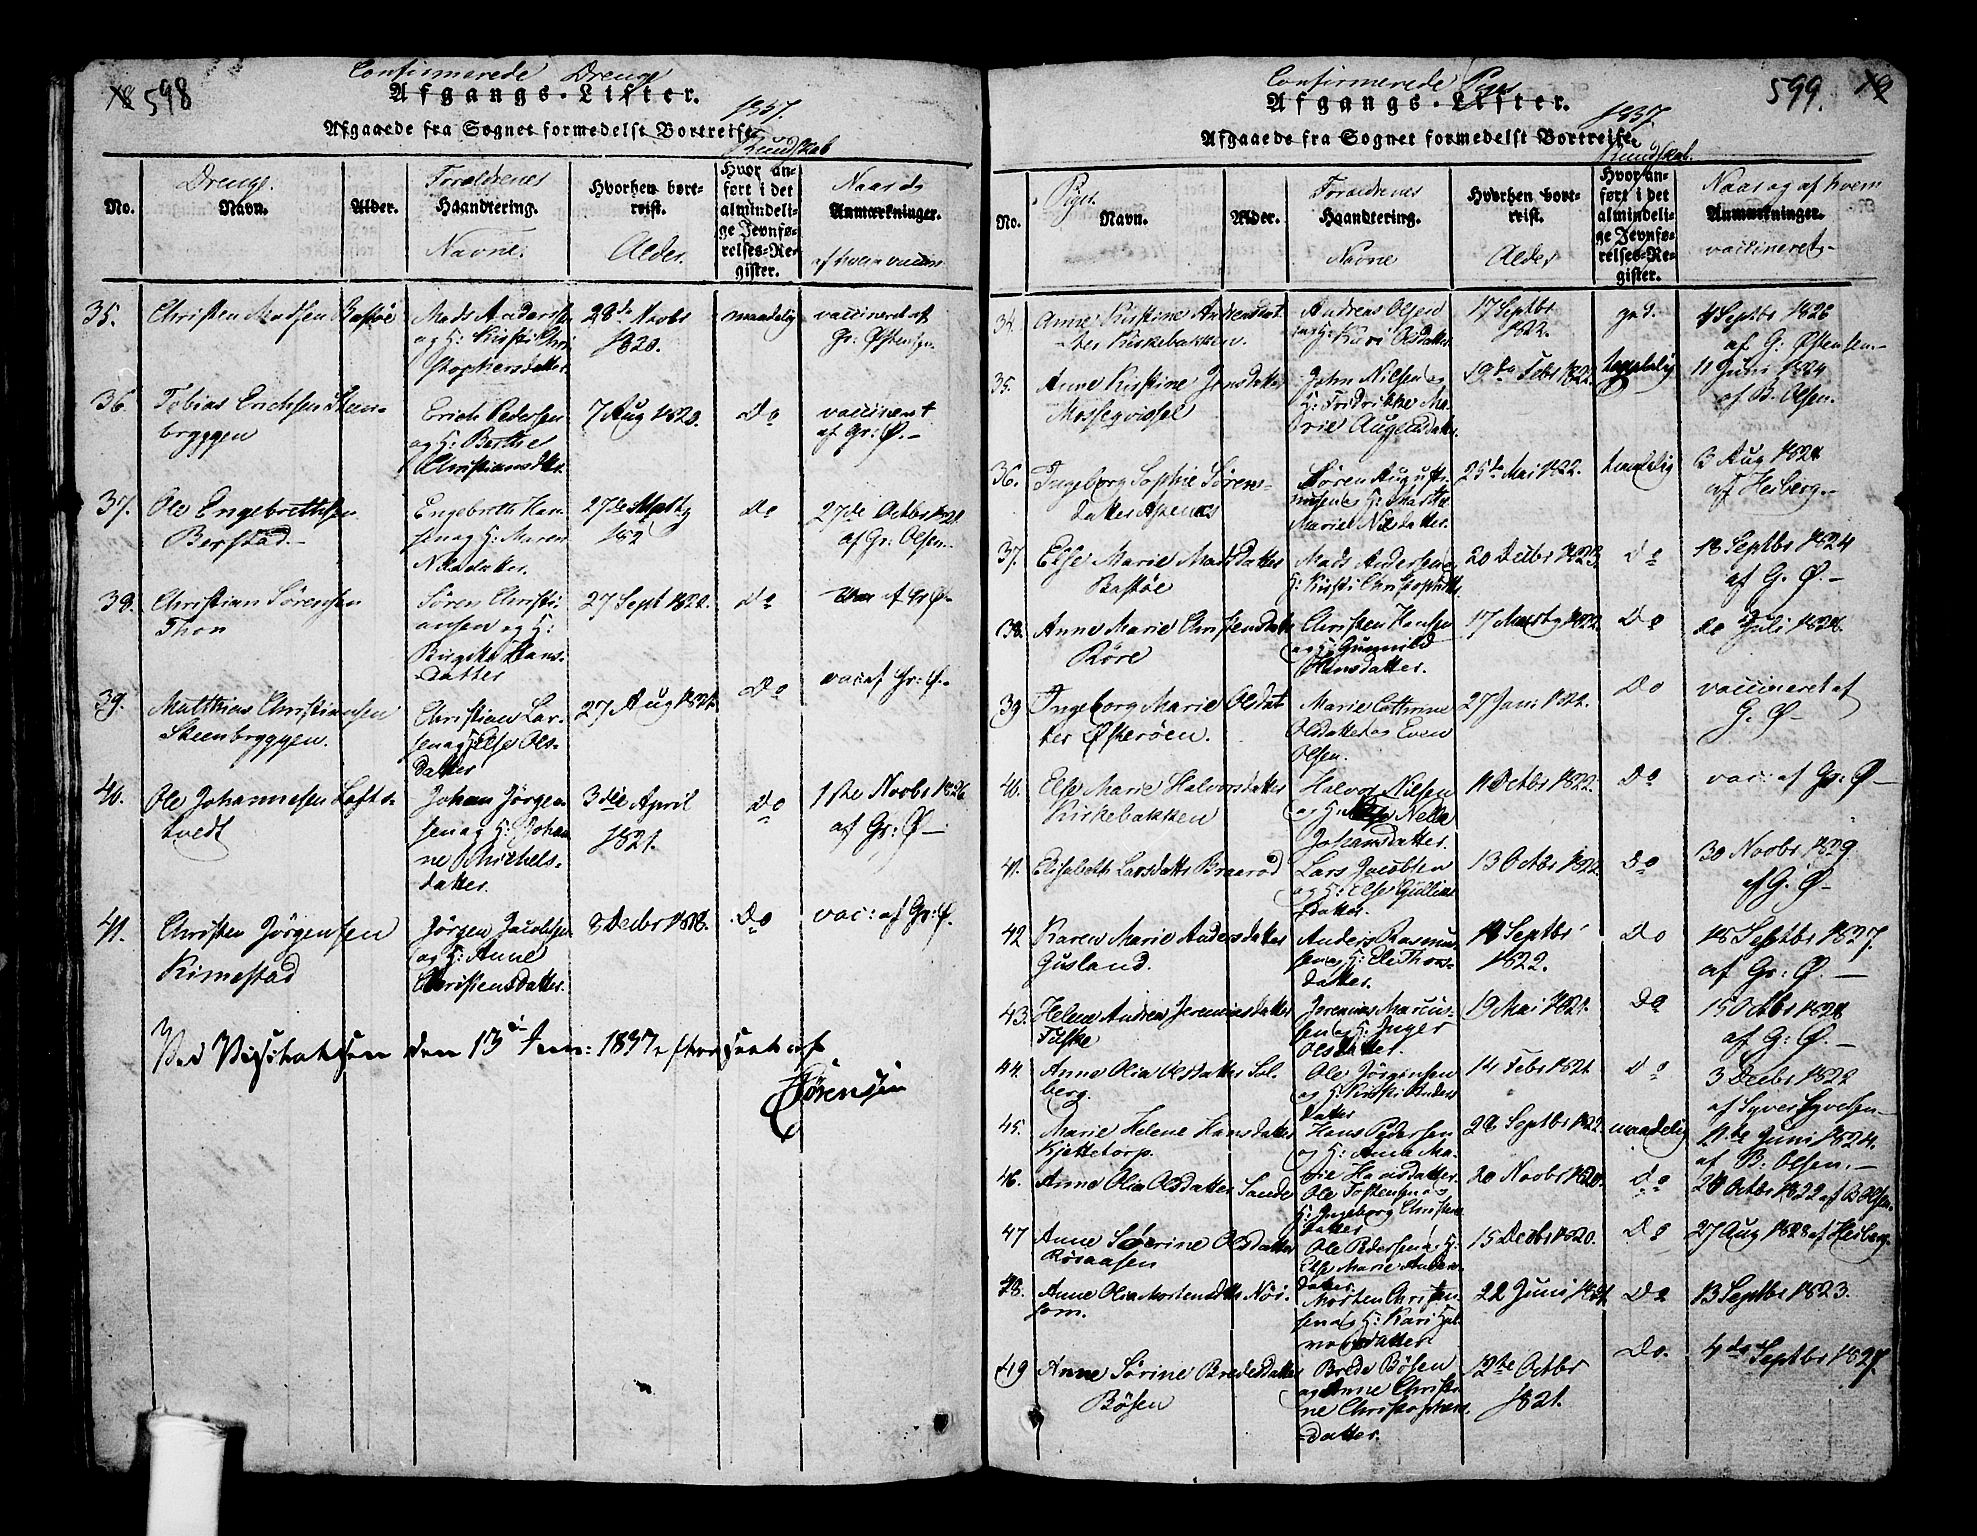 598
Confirmerede Drenge
Afgangs-Lister.
1837.
Afgaaede fra Sognet formedelst Bortreise.
Kundskab
No.
Drenge.
Navn.
Alder.
Forældrenes
Haandtering.
Navne.
Hvorhen bort-
reist.
Alder.
Hvor an-
ført i det
almindeli-
ge Jevnfø-
relses-Re-
gister.
Naar og
Anmærkninger.
af hvem vaccin
35. Christen Madsen Bastøe
Mads Anderss
og H: Kirsti Chri-
stophersdatter.
28de Novbr
1820.
maadelig
vaccineret af
Gr: Østensen.
36. Tobias Erichsen Steen-
bryggen
Erich Pedersen
og H: Berthe
Christiansdtter.
7 Aug 1820.
Do
vaccineret
af Gr: Ø.-
37. Ole Engebrethsen
Berstad.
Engebreth Han-
sen og H: Maren
Nilsdatter.
Do
27de Octbr 1821.
af Gr: Olsen.
38. Christian Sørensen
Thon
Søren Christi-
ansen og H:
Birgitte Hans-
datter
27 Sept 1822.
Do
af Gr Ø-
39. Matthias Christiansen
Steenbryggen.
Christian Lar-
sen og H: Else Ols-
datter
27 Aug 1821.
Do
vac: af Gr: Ø.-
40. Ole Johannesen Lofts-
tvedt
Johan Jørgen-
sen og H: Johan-
ne Michels-
datter.
3die April
1821.
Do
1ste Novbr 1826
af Gr: Ø-
41. Christen Jørgensen
Rimestad
Jørgen Jacobsen
og H: Anne
Christensdatter.
8 Decbr 1818.
Do
vac: af Gr: Ø.
Ved Visitatsen den 13d Jun: 1837 efterseet af
Sørensen
599.
Confirmerede Piger
Afgangs-Lister.
1837.
Afgaaede fra Sognet formedelst Bortreise.
Kundskab.
No.
Piger.
Navn.
Alder.
Forældrenes
Haandtering.
Navne
Hvorhen bort-
reist.
Alder
Hvor an-
ført i det
almindeli-
ge Jevnfø-
relses-Re-
gister.
Naar og af hvem
Anmærkninger.
vaccineret-
34. Anne Kirstine Andreasdat-
ter Kirkebakken.
Andreas Olsen
og H: Kari Olsdatter.
17 Septbr
1822.
god.
4 Septbr 1826
af G: Østensen.-
35. Anne Kirstine Jonsdatter
John Nilsen og
H: Fredrikke Ma-
rie Augensdatter.
19de Febr 1822.
temmelig
11 Juni 1824
af B. Olsen.
36. Ingeborg Sophie Sørens-
datter
Søren August-
insen og H: Marthe
Marie Nilsdatter.
25de Mai 1822.
temmelig
3 Aug 1824
af Heiberg.-
37. Else Marie Madsdatter
Bastøe
Mads Andersen og
H: Kirsti Christophdtt.
20 Decbr 1823.
Do
18 Septbr 1824
af G. Ø.-
38. Anne Marie Christensdatter
Røre
Christen Hansen
og H: Gunnild
Hansdatter.
17 Marts 1822.
Do
do Juli 1826.
39 Ingeborg Marie Olsdat-
ter Østerøen.
Marie Cathrine
Olsdatter og Even
Olsen.
27 Jan: 1822.
Do
vaccineret af
G. Ø-
40. Else Marie Halvorsdatter
Kirkebakken
Halvor Nilsen
og H: Nella
Johansdatter.
11 Octbr 1822.
Do
vac: af Gr: Ø-
41. Elisabeth Larsdatter Braarød
Lars Jacobsen
og H: Else Gulliks-
datter
13 Octbr 1822.
Do
30 Novbr 1829
af G. Ø-
42 Karen Marie Andersdatter
Gusland.
Anders Rasmus-
sen og H: Eli Thors-
datter.
18 Septbr
1822.
Do
18 Septbr 1827.
af Gr: Ø.-
43. Helene Andrea Jeremiasdatter
Fuske
Jeremias Marcus-
sen og H: Inger
Olsdatter.
19 Mai 1821.
Do
15 Octbr 1828
af G: Ø.-
44. Anne Olia Olsdatter Sol-
berg.
Ole Jørgensen
og H: Kirsti Anders-
datter
14 Febr 1821
Do
3 Decbr 1822
af Syver Syversen-
45. Marie Helene Hansdatter
Kjettetorp.
Hans Pedersen
og H: Anne Ma-
rie Hansdatter.
28 Septbr 1822.
maadelig
11te Juni 1824.
af B: Olsen.-
46. Anne Olia Olsdatter Sande
Ole Tostensen og
H: Ingeborg Christens-
datter
20 Novbr 1820.
Do
28 Octbr 1822 af B Olsen.
47 Anne Sørine Olsdatter
Røsaasen
Ole Pedersen og H:
Else Marie Anders-
datter
15 Decbr 1820.
Do
27 Aug 1828 af Heiberg.
48. Anne Olia Mortensdtter Nøi-
som.
Morten Christen-
sen og H: Kari Hal-
vorsdatter
22 Juni 1821.
Do
13 Septbr 1823.
49 Anne Sørine Bredesdatter
Bøsen
Brede Bøsen
og Anne Christi-
ne Christophers-
datter.
12te Octbr
1821.
Do.
4de Septbr 1827.